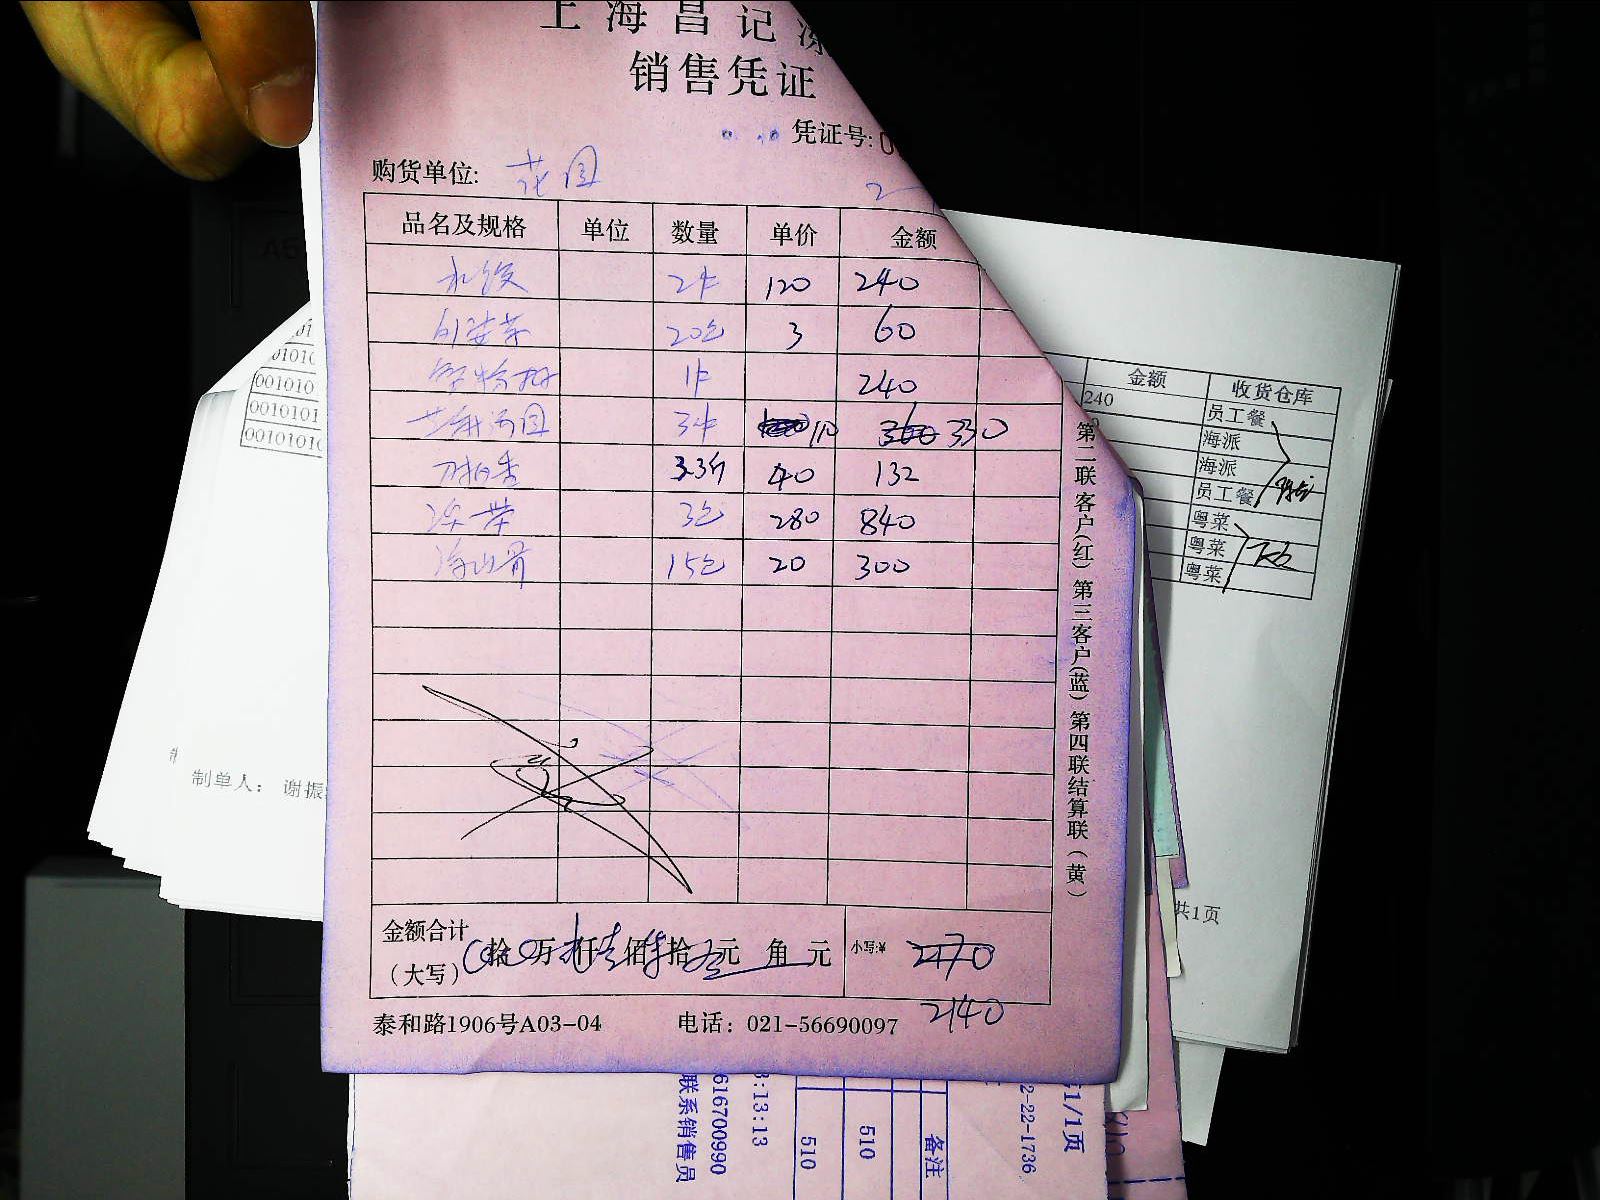 上海昌记冻
销售凭证
凭证号:0
购货单位: 花园
品名及规格 单位 数量 单价 金额
水饺 2件 120 240
20包 3 60
1件 240
芝麻汤圆 3件 110 330
3.3斤 40 132
3包 280 840
15包 20 300
金额合计
(大写) 拾 万 仟 佰 拾 元 角 元 小写:¥ 2170
2140
泰和路1906号A03-04 电话: 021-56690097
第二联客户(红) 第三客户(蓝) 第四联结算联(黄)
金额 收货仓库
240 员工餐
海派
海派
员工餐
粤菜
粤菜
粤菜
共1页
01
01010
001010
0010101
00101010
制单人: 谢振
联系销售员
616700990
3:13:13
510
510
备注
2-22-1736
1/1页